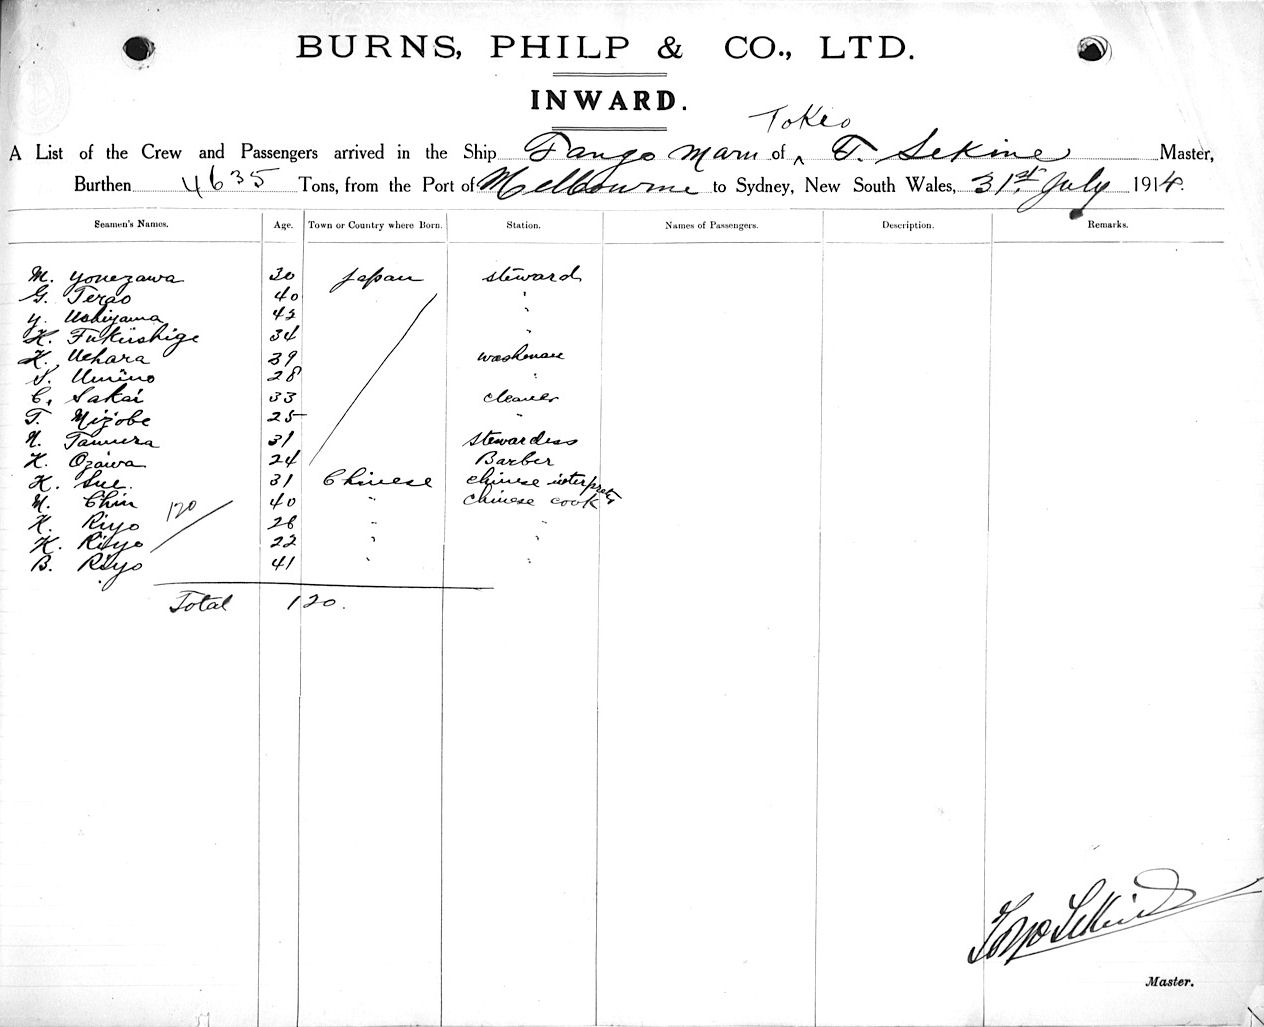 BURNS, PHILP & CO., LTD.
INWARD.
Tokeo
A List of the Crew and Passengers arrived in the Ship Tango Maru of ^ T. Sekine Master,
Burthen 4635 Tons, from the Port of Melbourne to Sydney, New South Wales, 31st July 1914.
Seamen's Names. Age. Town or Country where Born. Station. Names of Passengers. Description. Remarks.
M. Yonezawa 30 Japan steward
G. Terao 40 "
Y. Uchiyama 42 "
K. Fukushige 34 "
K. Uehara 39 washman
S. Umino 28 "
C. Sakai 33 cleaner
T. Mizobe 25 "
N. Tamura 31 stewardess
K. Ozawa 24 Barber
K. Sue. 31 Chinese chinese interpreter
M. Chin 40 " chinese cook
120
K. Riyo 26 " "
K. Riyo 22 " "
B. Riyo 41 " "
Total 120.
Toyo Sekine
Master.